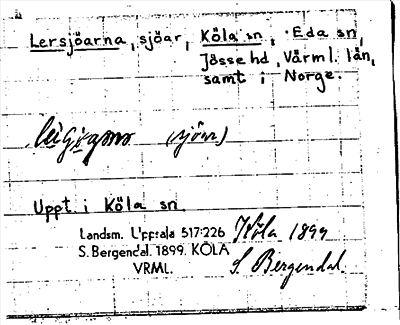 Lersjöarna, sjöar, Köla sn, Eda sn,
Jösse hd, Värml. län,
samt i Norge.
(sjöar)
Uppt. i Köla sn.
Landsm. Uppsala 517:226
S. Bergendal. 1899. KÖLA
VRML.
Köla 1899
S. Bergendal.